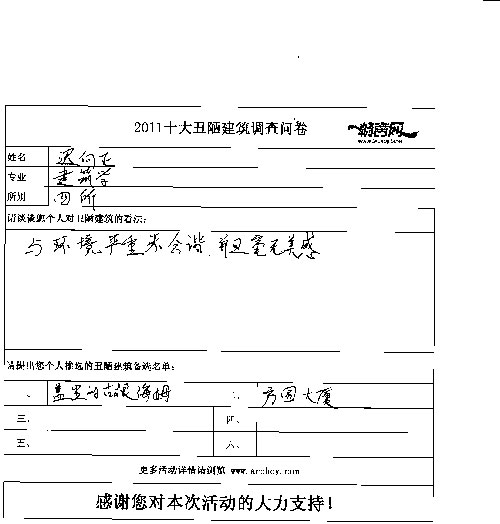 2011十大丑陋建筑调查问卷
畅言网
姓名 迟向正
专业 建筑学
所别 四所
请谈谈您个人对丑陋建筑的看法：
与环境严重不合谐 并且毫无美感
请提出您个人推选的丑陋建筑备选名单：
一、 盖里的古根海姆 二、 方圆大厦
三、 四、
五、 六、
更多活动详情请浏览 www.archcy.com
感谢您对本次活动的大力支持！